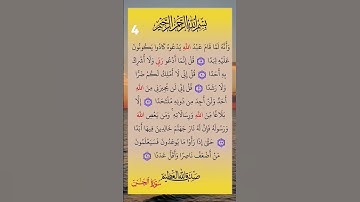 4
بسم الله الرحمن الرحيم
وَأَنَّهُ لَمَّا قَامَ عَبْدُ اللَّهِ يَدْعُوهُ كَادُوا يَكُونُونَ
عَلَيْهِ لِبَدًا ۞ قُلْ إِنَّمَا أَدْعُو رَبِّي وَلَا أُشْرِكُ
بِهِ أَحَدًا ۞ قُلْ إِنِّي لَا أَمْلِكُ لَكُمْ ضَرًّا
وَلَا رَشَدًا ۞ قُلْ إِنِّي لَن يُجِيرَنِي مِنَ اللَّهِ
أَحَدٌ وَلَنْ أَجِدَ مِن دُونِهِ مُلْتَحَدًا ۞ إِلَّا
بَلَاغًا مِّنَ اللَّهِ وَرِسَالَاتِهِ ۚ وَمَن يَعْصِ اللَّهَ
وَرَسُولَهُ فَإِنَّ لَهُ نَارَ جَهَنَّمَ خَالِدِينَ فِيهَا أَبَدًا
۞ حَتَّىٰ إِذَا رَأَوْا مَا يُوعَدُونَ فَسَيَعْلَمُونَ
مَنْ أَضْعَفُ نَاصِرًا وَأَقَلُّ عَدَدًا ۞
صدق الله العظيم
سورة الجن